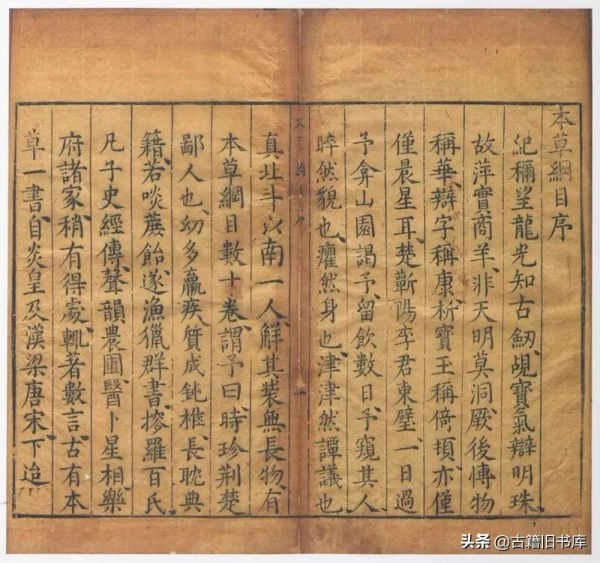 本草綱目序
紀稱望龍光知古劒覘寶氣辯明珠
故萍實商羊非天明莫洞厥後博物
稱華辯字稱康析寶玉稱倚頓亦僅
僅晨星耳楚蘄陽李君東璧一日過
予弇山園謁予留飲數日予窺其人
睟然貌也癯然身也津津然譚議也
真北斗以南一人解其裝無長物有
本草綱目數十卷謂予曰時珍荆楚
鄙人也幼多羸疾質成鈍椎長耽典
籍若啖蔗飴遂漁獵群書搜羅百氏
凡子史經傳聲韻農圃醫卜星相樂
府諸家稍有得處輒著數言古有本
草一書自炎皇及漢梁唐宋下迨
头条 @古籍旧书库